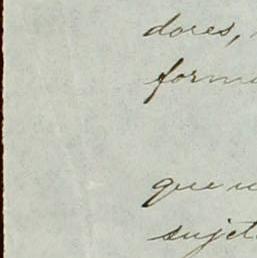 dores,
forma
que u
sujet